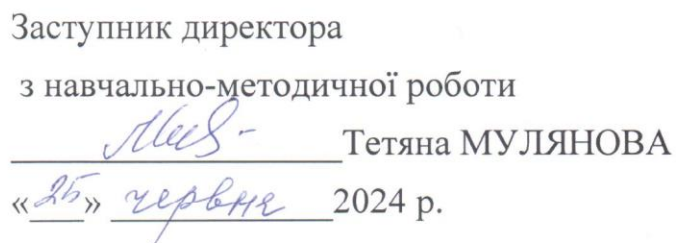 Заступник директора
з навчально-методичної роботи
Тетяна МУЛЯНОВА
«25» червня 2024 р.